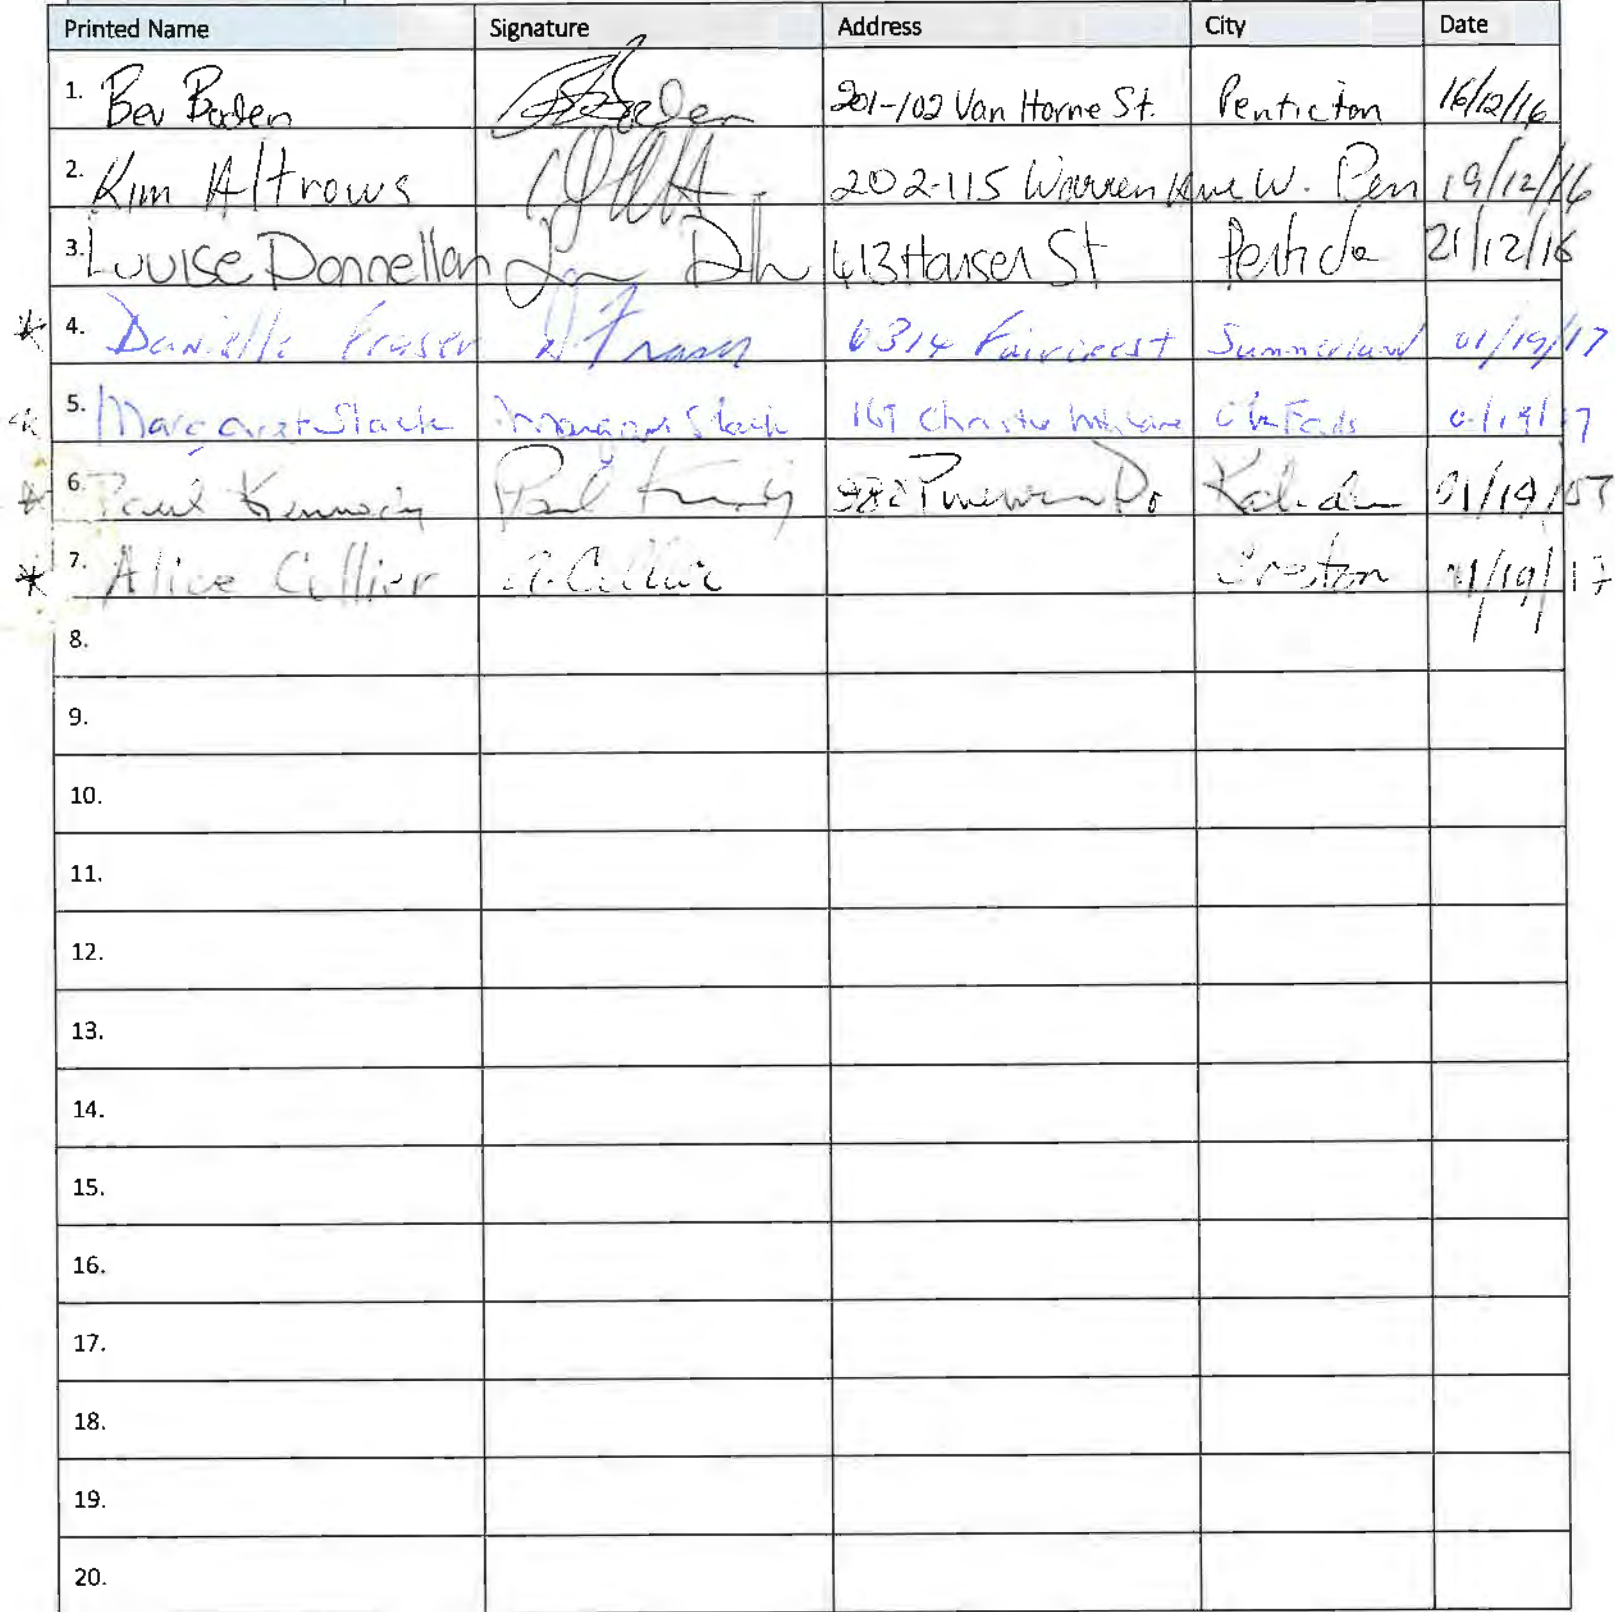 Printed Name Signature Address City Date
1. Bev Boden 201-102 Van Horne St. Penticton 16/12/16
2. Kim Altrows 202-115 Warren Ave W. Pen 19/12/16
3. Louise Donnellan 413 Hansen St 21/12/16
* 4. Danielle Fraser D Fraser 6314 Faircrest Summerland 01/19/17
5. Margaret Slack Margaret Slack Christie
* 6. Paul Paul 01/19/
* 7. Alice Collier A. Collier Creston 01/19/17
8.
9.
10.
11.
12.
13.
14.
15.
16.
17.
18.
19.
20.